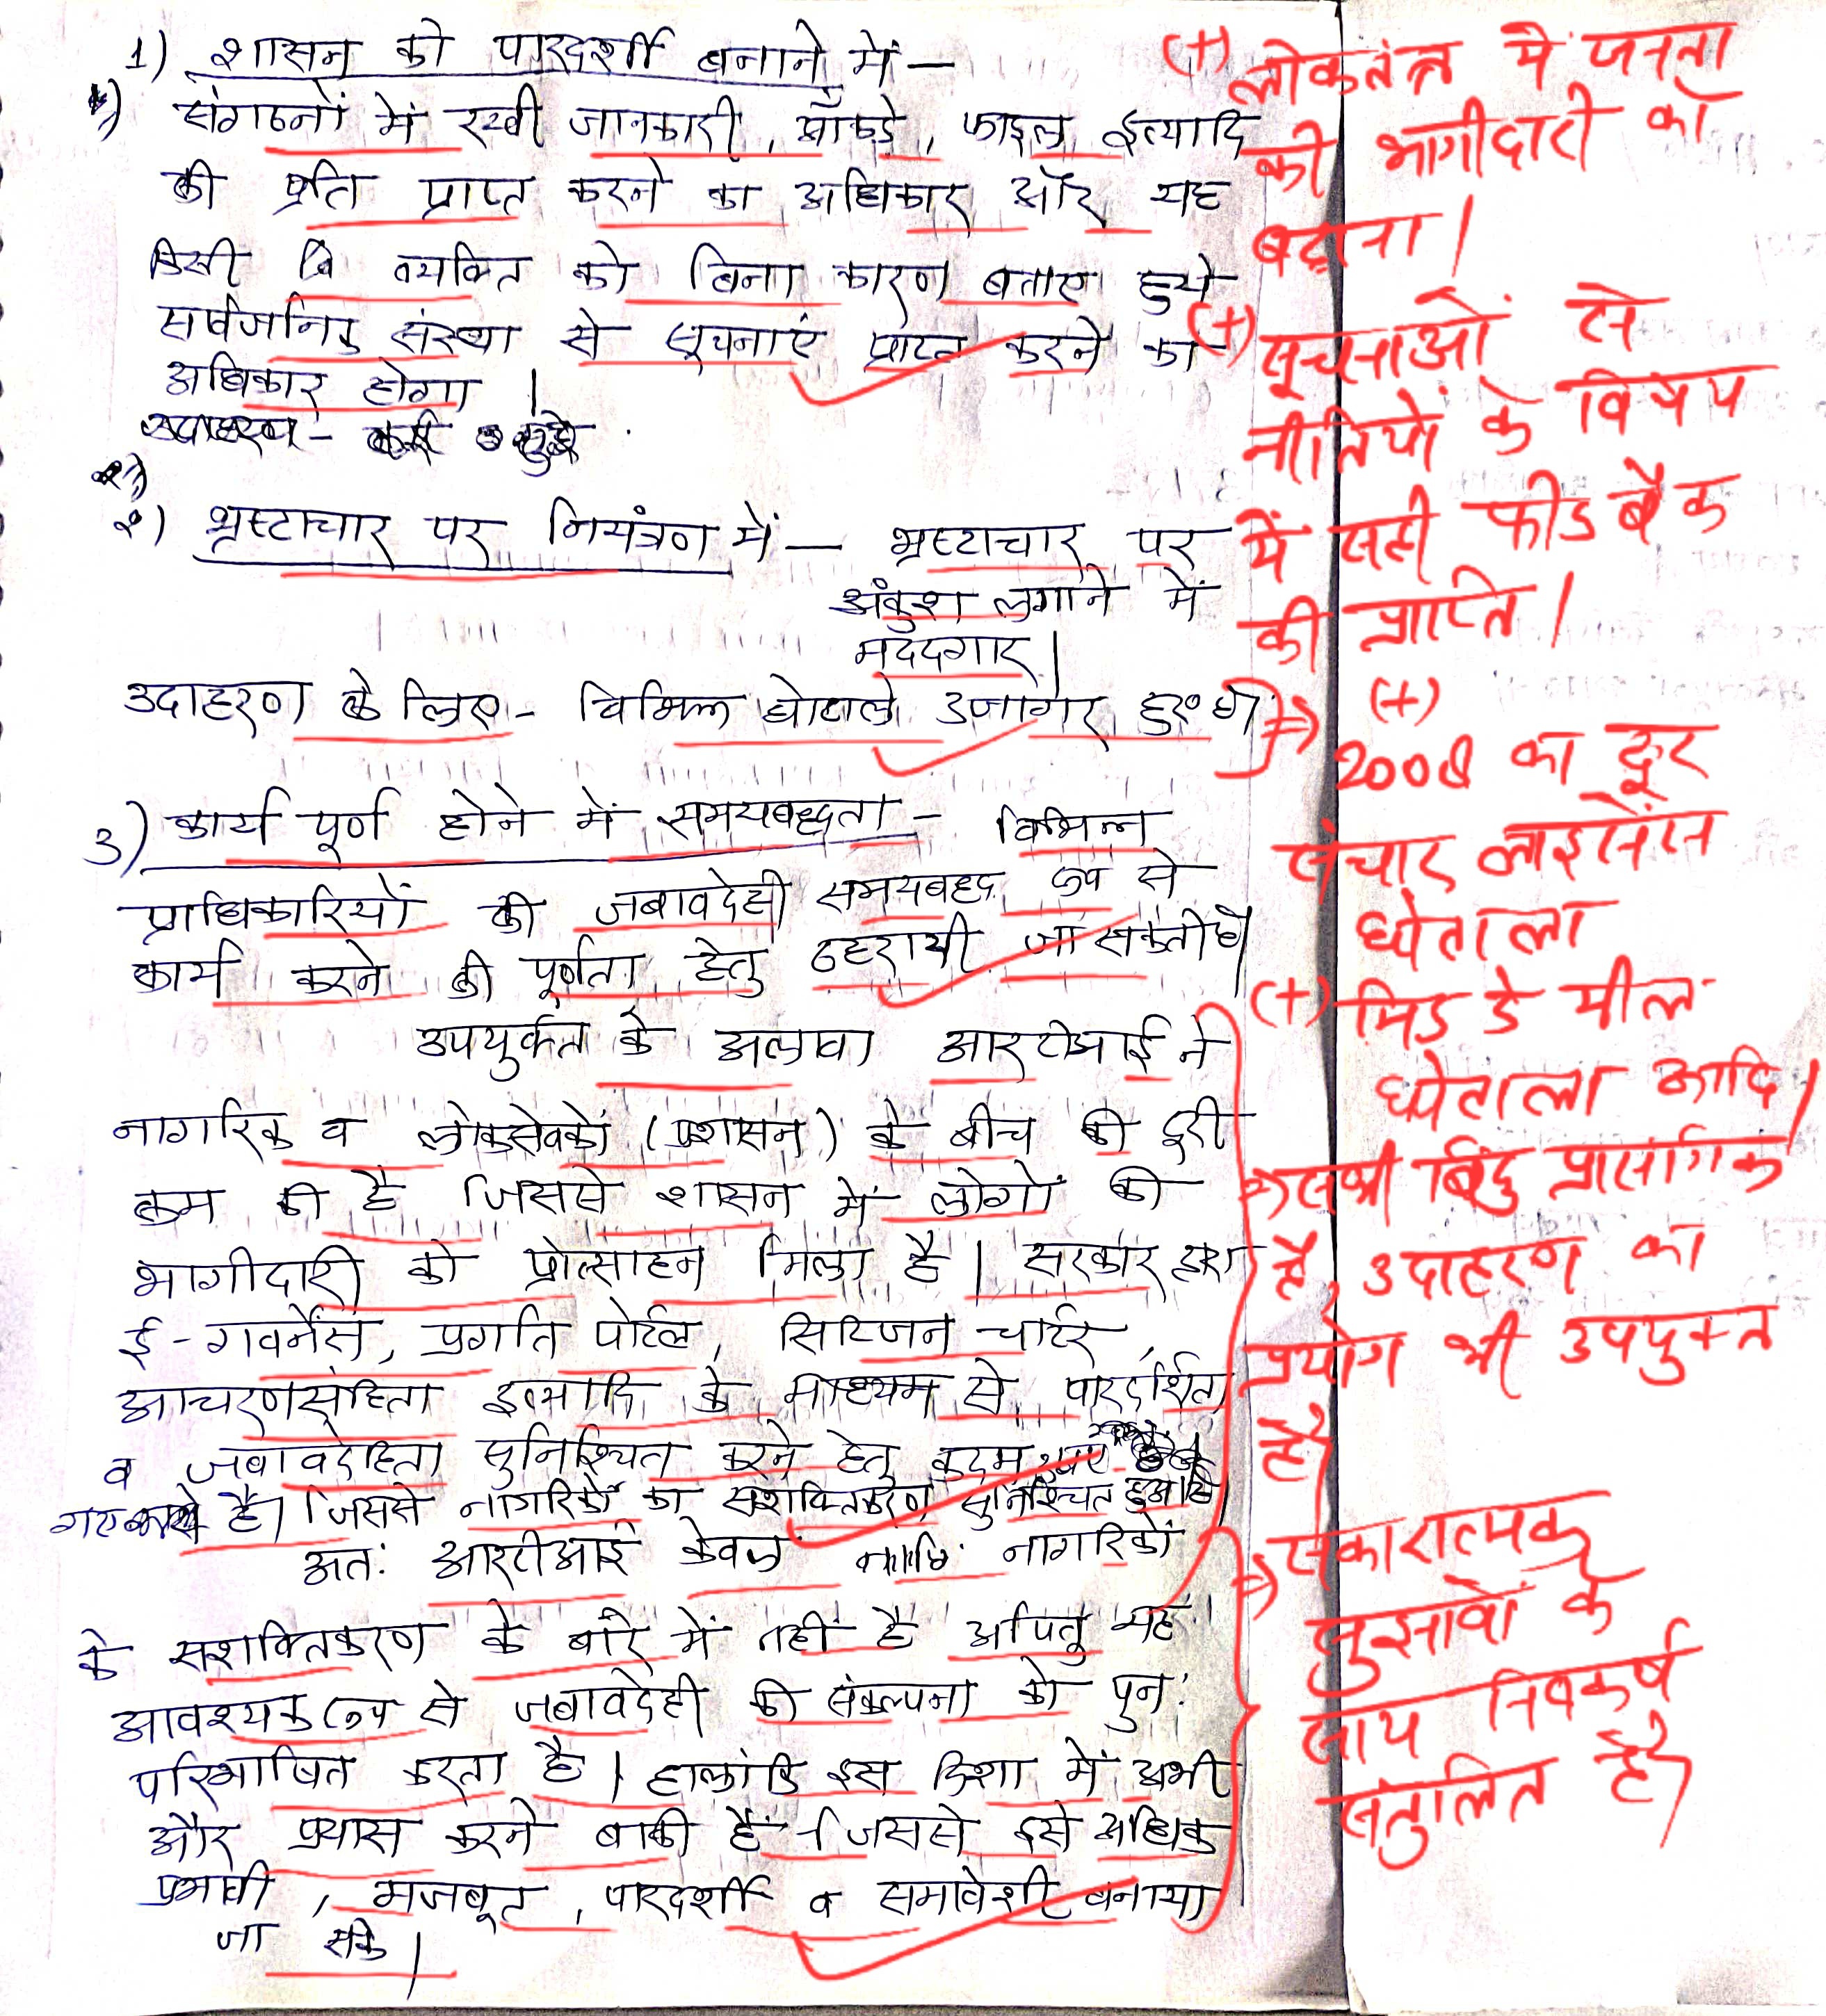 1) शासन को पारदर्शी बनाने में –
संगठनों में रखी जानकारी, आँकड़े, फाइल इत्यादि
की प्रति प्राप्त करने का अधिकार और यह
किसी व्यक्ति को बिना कारण बताए हुये
सर्वजनिक संस्था से सूचनाएं प्राप्त करने का
अधिकार होगा |
उदाहरण –
२) भ्रष्टाचार पर नियंत्रण में – भ्रष्टाचार पर
अंकुश लगाने में
मददगार |
उदाहरण के लिए - विभिन्न घोटाले उजागर हुए थे
3) कार्य पूर्ण होने में समयबद्धता - विभिन्न
प्राधिकारियों की जबावदेही समयबद्ध रूप से
कार्य करने की पूर्णता हेतु ठहरायी जा सकती है|
उपयुर्कत के अलावा आरटीआई ने
नागरिक व लोकसेवकों (प्रशासन) के बीच की दूरी
कम की है जिससे शासन में लोगों की
भागीदारी को प्रोत्साहन मिला है | सरकार द्वारा
ई-गवर्नेंस, प्रगति पोर्टल, सिटिजन चार्टर,
आचरणसंहिता इत्यादि के माध्यम से पारदर्शिता
व जबावदेहिता सुनिश्चित करने हेतु कदम
गए है| जिससे नागरिकों का सशक्तिकरण सुनिश्चित हुआ है|
अतः आरटीआई केवल नागरिकों
के सशक्तिकरण के बारे में नहीं है अपितु यह
आवश्यक रूप से जबावदेही की संकल्पना को पुनः
परिभाषित करता है | हालांकि इस दिशा में अभी
और प्रयास करने बाकी हैं जिससे इसे अधिक
प्रभावी, मजबूत, पारदर्शी व समावेशी बनाया
जा सके |
(+) लोकतंत्र में जनता
की भागीदारी का
बढ़ाना |
(+) सूचनाओं से
नीतियों के विषय
में सही फीडबैक
की प्राप्ति |
⇒ (+)
2008 का दूर
संचार लाइसेंस
घोटाला
(+) मिड डे मील
घोटाला आदि |
⇒ सभी बिंदु प्रासंगिक
हैं, उदाहरण का
प्रयोग भी उपयुक्त
है|
⇒ सकारात्मक
सुझावों के
साथ निष्कर्ष
संतुलित है|